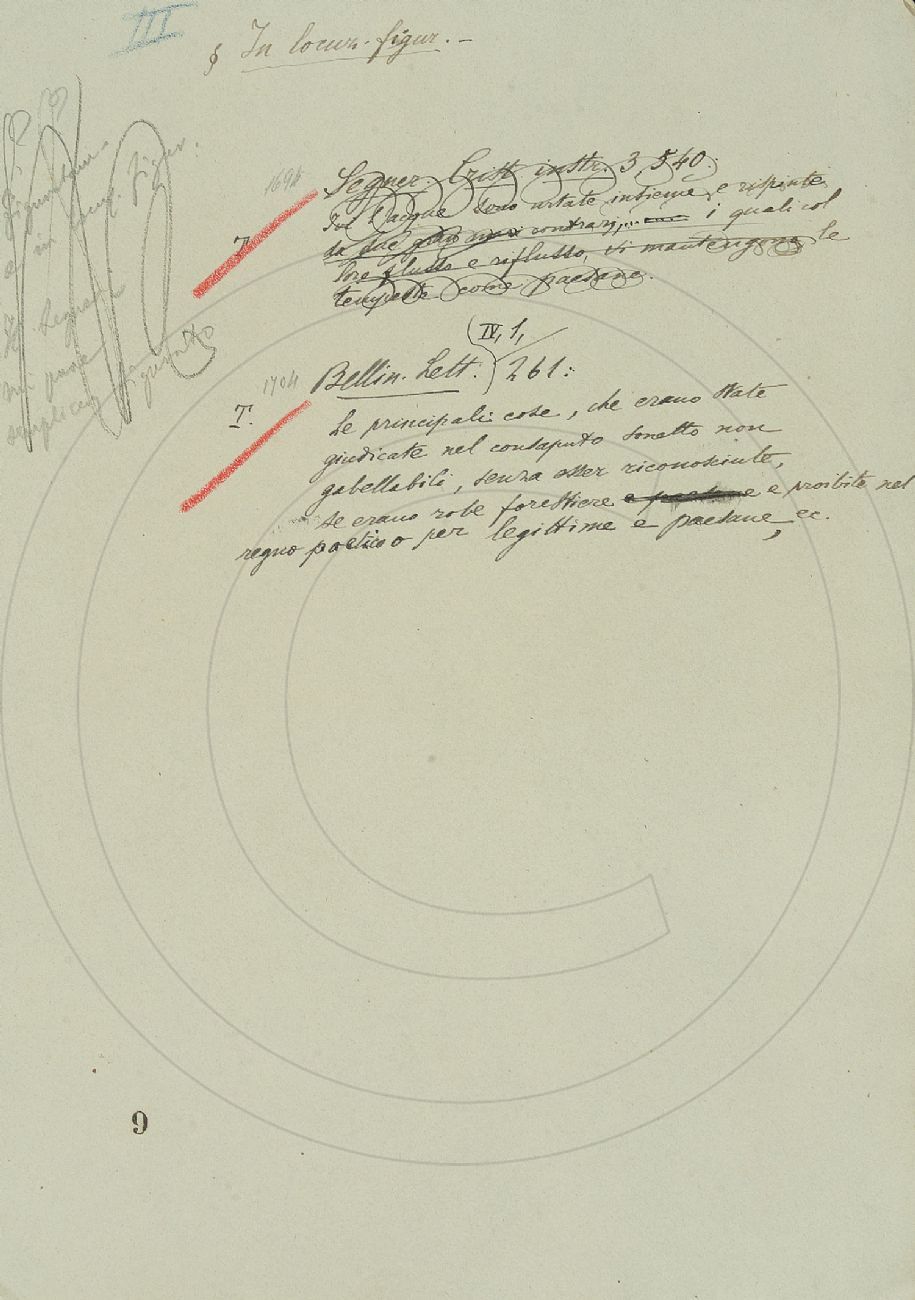 III
§ In locuz. figur. –
Figuratam.
e in locuz. figur.
Il Segneri
mi pare
semplicem figurato
1694
T.
Segner. Crist. instr. 3, 540.
Ivi l'acque sono urtate insieme e rispinte
da due mari contrarj,... i quali col
loro flusso e riflusso, vi mantengono le
tempeste come paesane.
(IV, 1,
1704
T.
Bellin. Lett. 261:
Le principali cose, che erano state
giudicate nel consaputo sonetto non
gabellabili, senza esser riconosciute,
se erano robe forestiere e proibite nel
regno poetico o per legittime e paesane, ec.
9